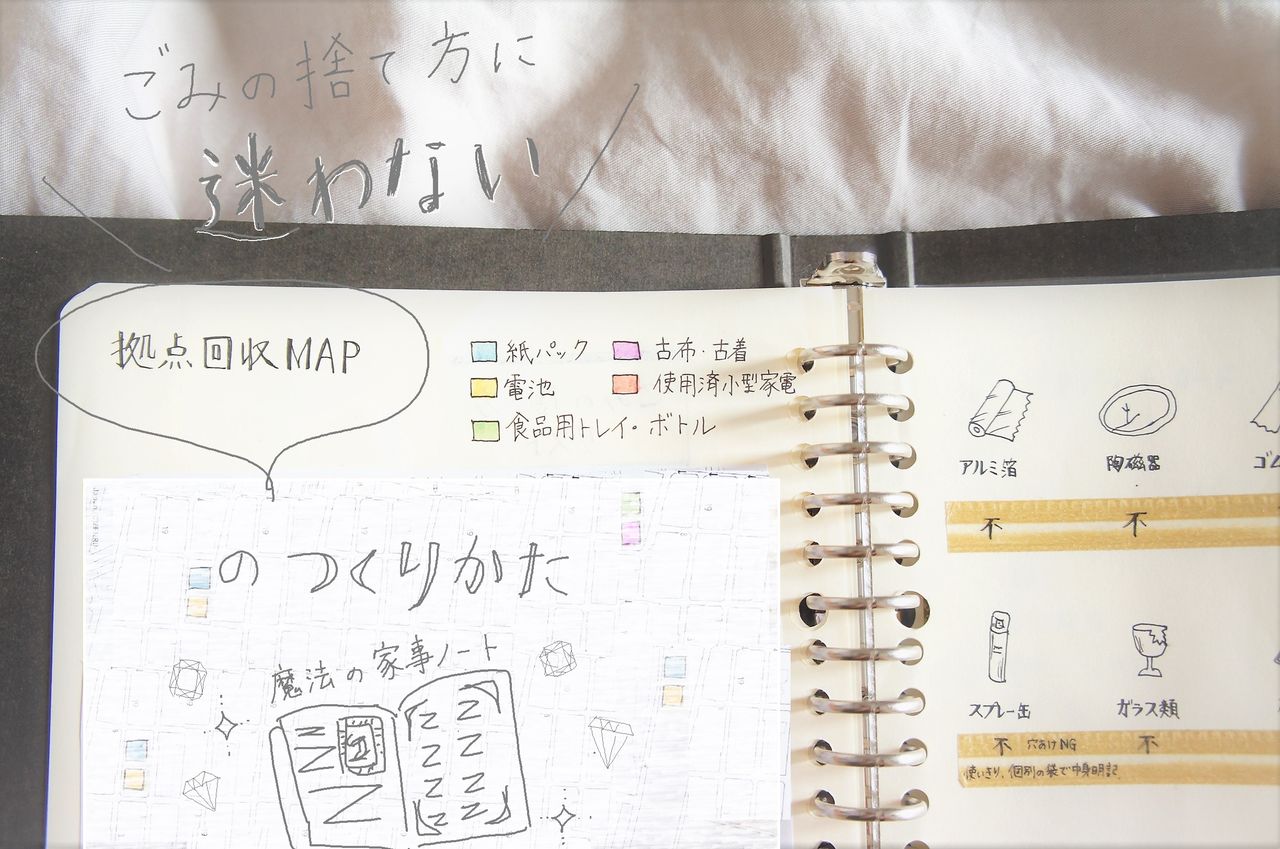 ごみの捨て方に
迷わない
拠点回収MAP
紙パック
古布・古着
電池
使用済小型家電
食品用トレイ・ボトル
のつくりかた
魔法の家事ノート
アルミ箔
陶磁器
ゴム
不
不
スプレー缶
ガラス類
不 穴あけNG
不
使いきり、個別の袋で中身明記